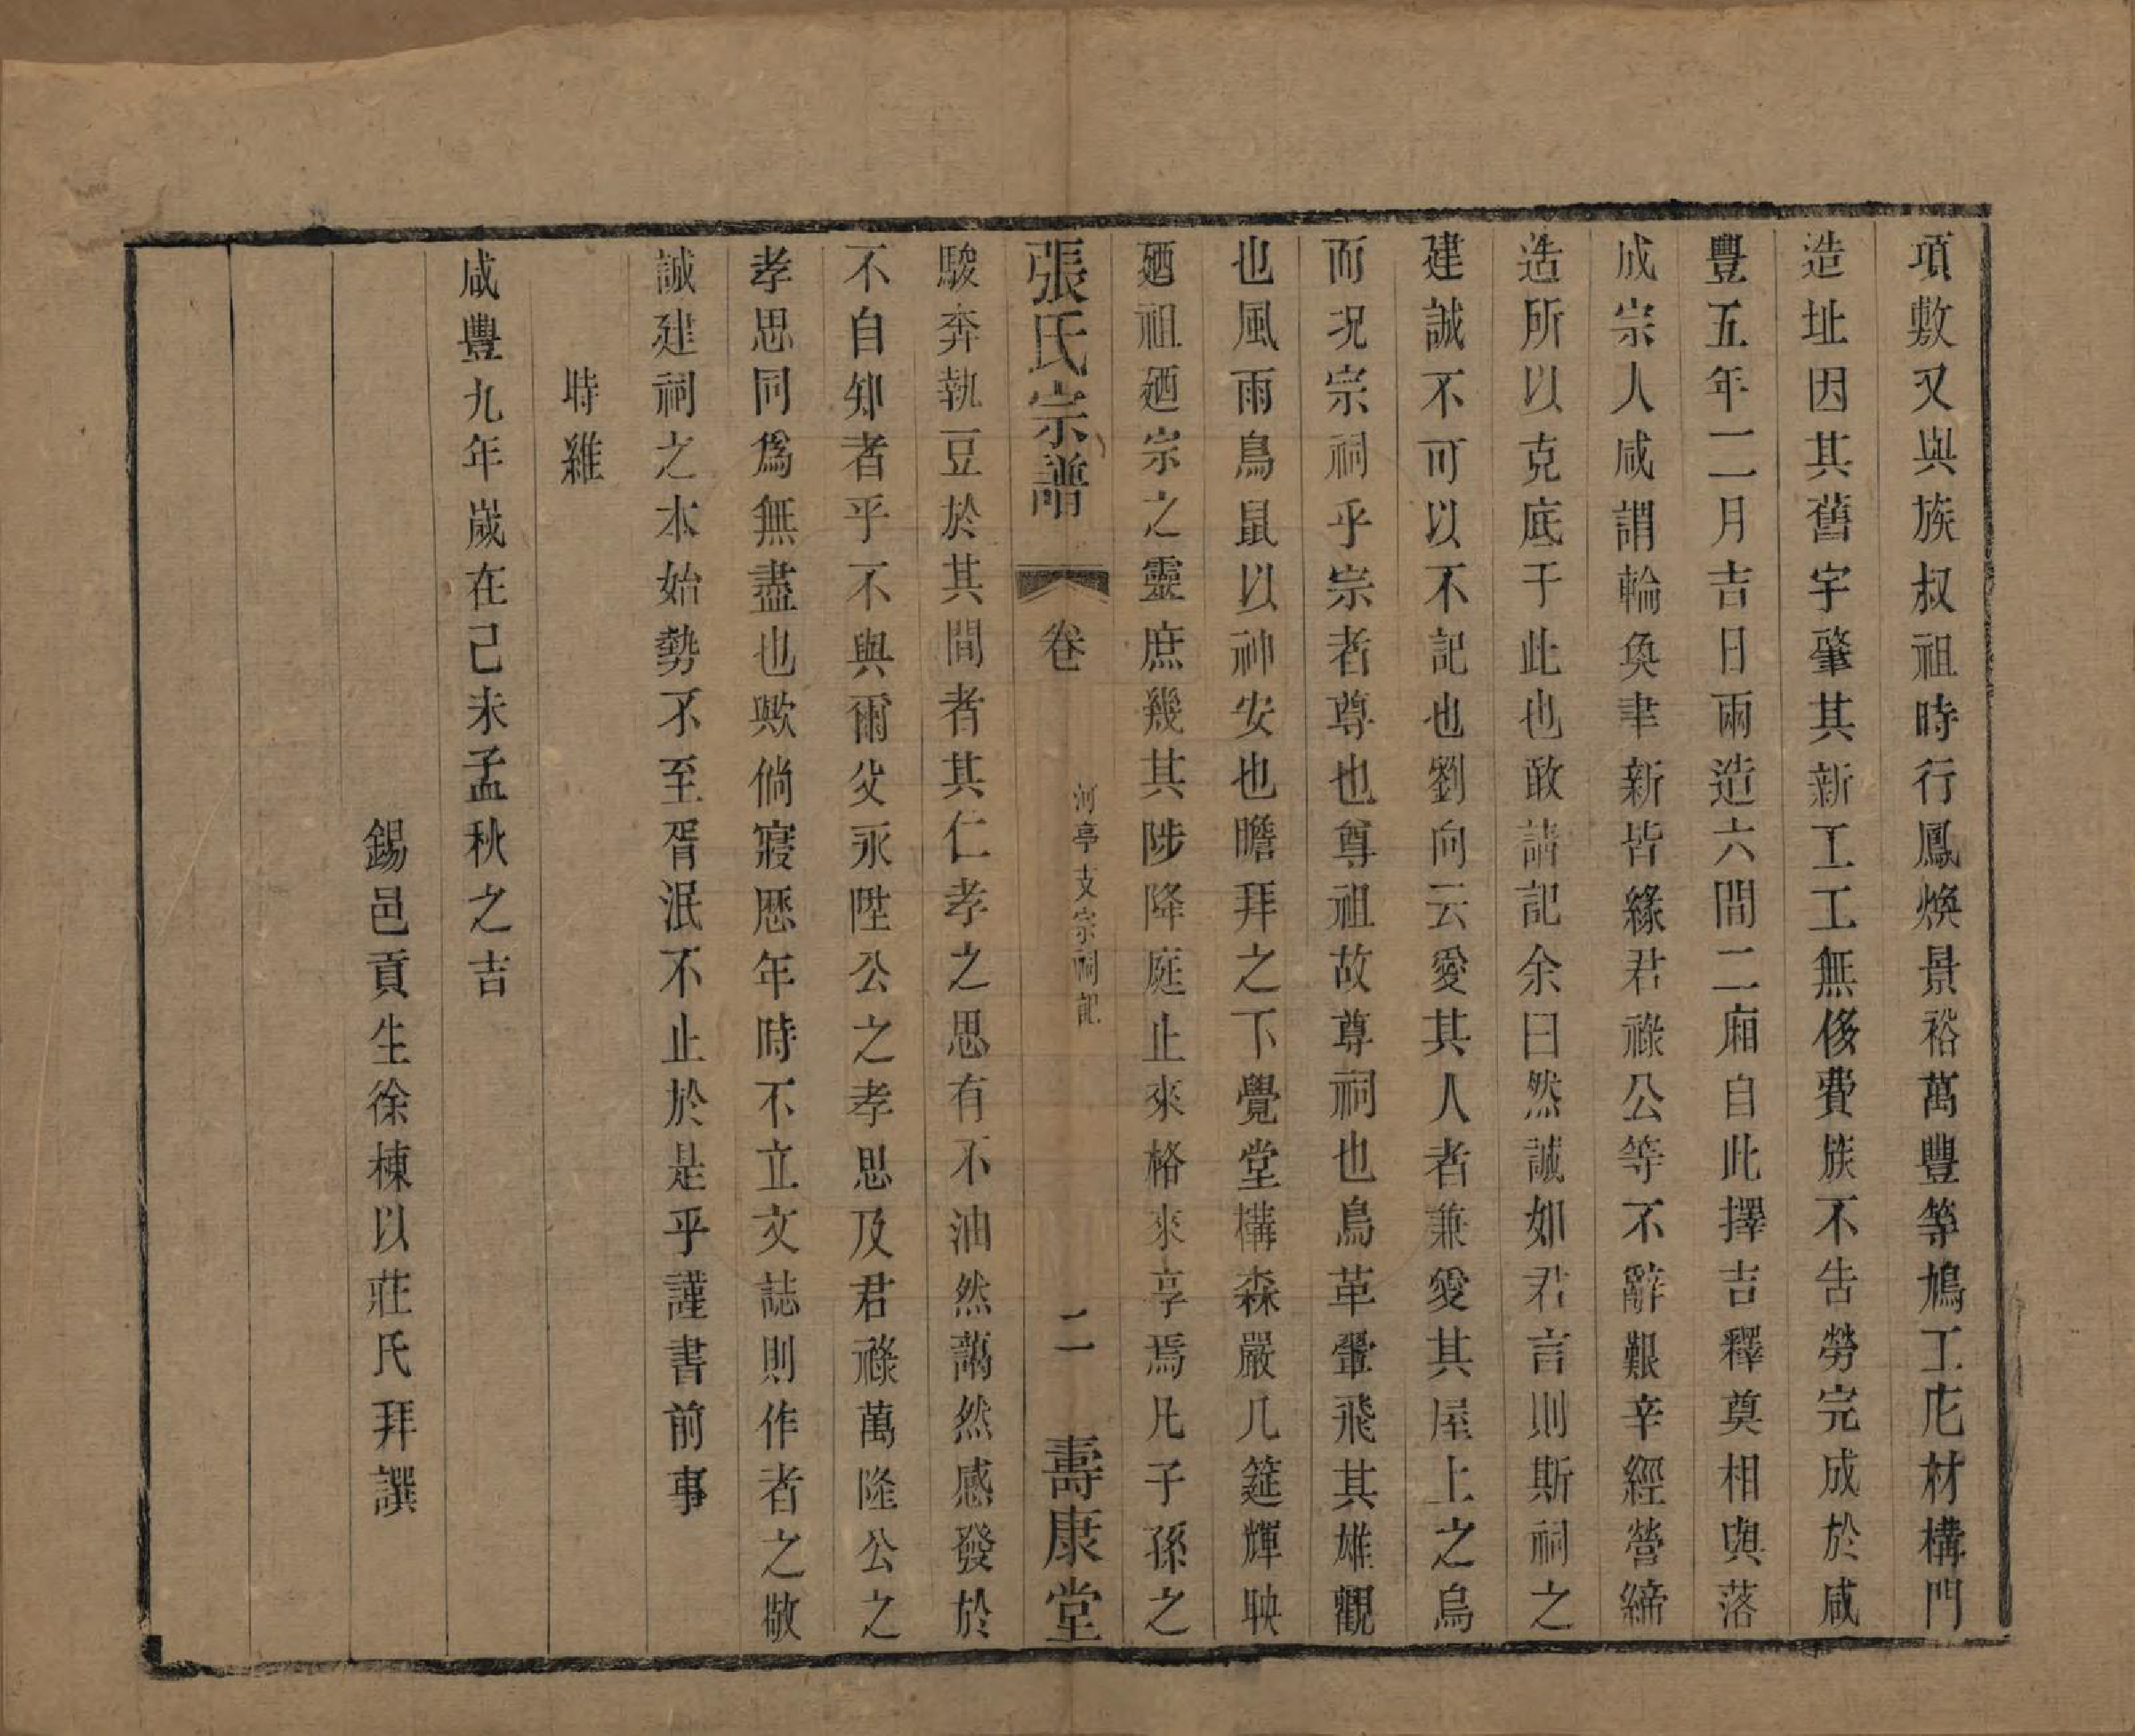 項敷又與族叔祖時行鳳煥景裕萬豐等鳩工庀材構門
造址因其舊宇肇其新工工無侈費族不告勞完成於咸
豐五年二月吉日兩造六間二廂自此擇吉釋奠相與落
成宗人咸謂輪奐聿新皆緣君祿公等不辭艱辛經營締
造所以克底于此也敢請記余曰然誠如君言則斯祠之
建誠不可以不記也劉向云愛其人者兼愛其屋上之烏
而况宗祠乎宗者尊也尊祖故尊祠也鳥革翬飛其雄觀
也風雨鳥鼠以神安也瞻拜之下覺堂構森嚴几筵輝映
廼祖廼宗之靈庶幾其陟降庭止來格來享焉凡子孫之
張氏宗譜 卷 河亭支宗祠記 二 壽康堂
駿奔執豆於其間者其仁孝之思有不油然藹然感發於
不自知者乎不與爾父永陞公之孝思及君祿萬隆公之
孝思同為無盡也歟倘寢歷年時不立文誌則作者之敬
誠建祠之本始勢不至胥泯不止於是乎謹書前事
時維
咸豐九年歲在己未孟秋之吉
錫邑貢生徐棟以莊氏拜譔